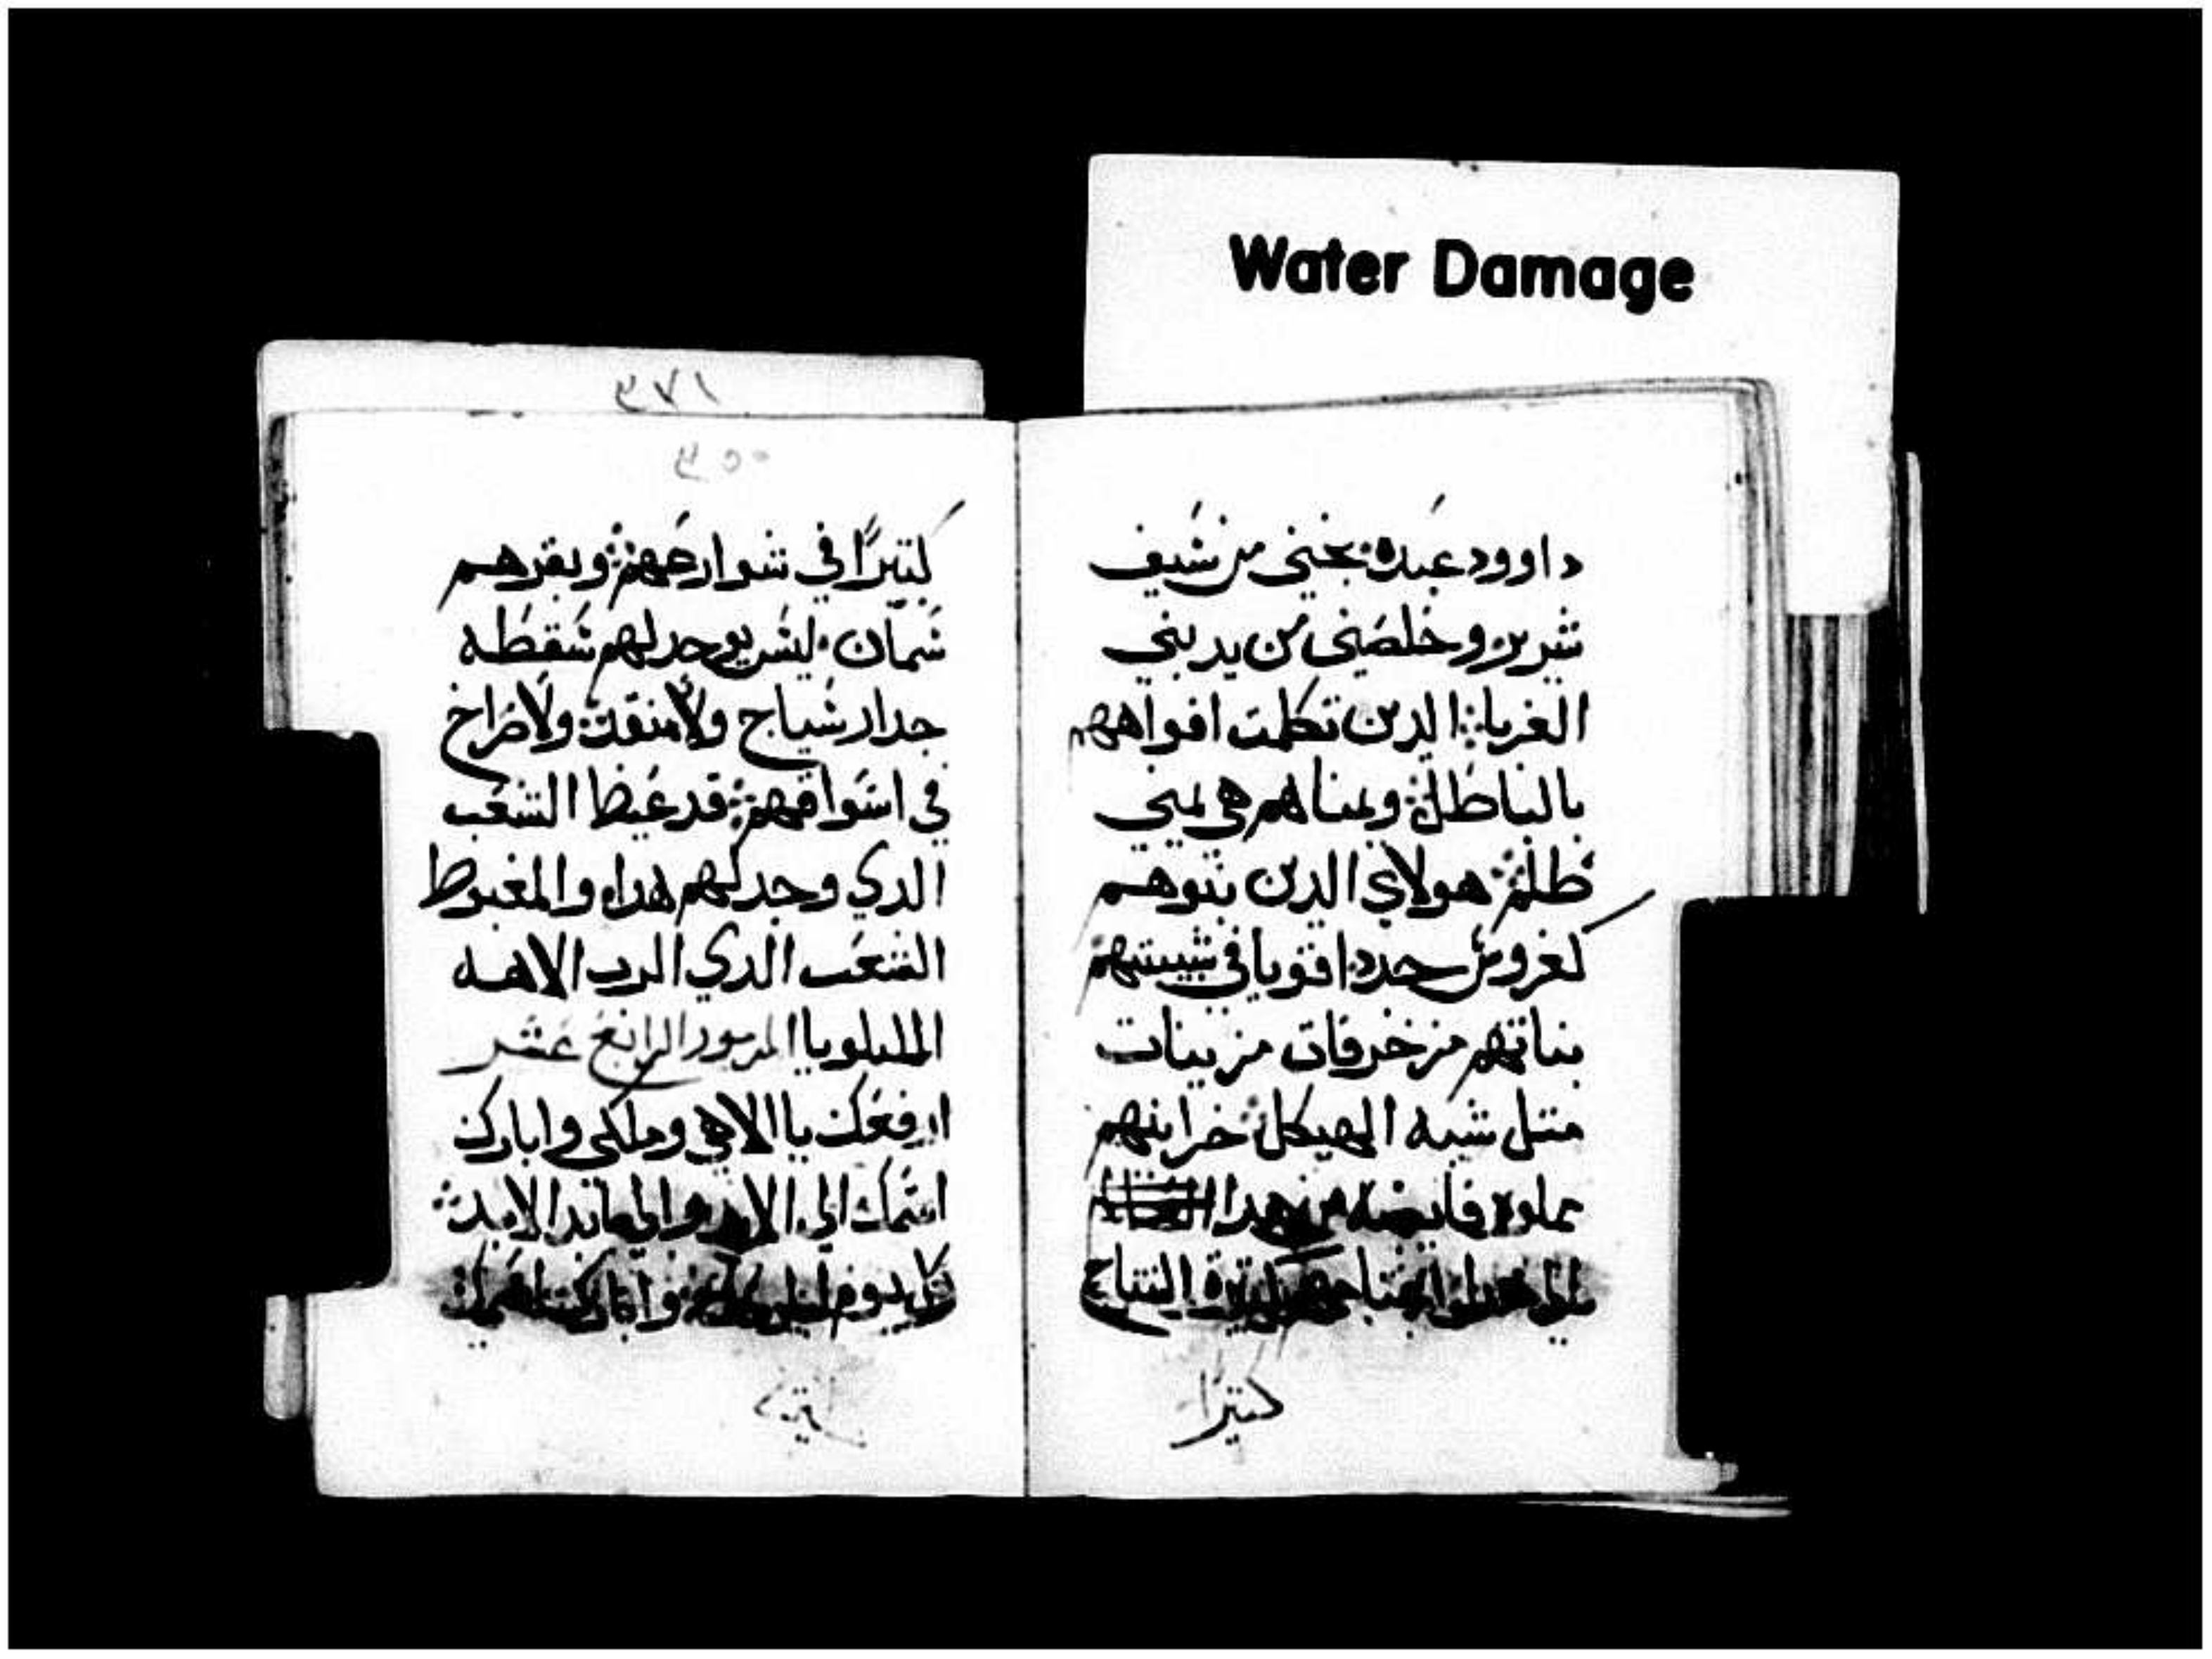 Water Damage
داوود عبده نجني من سيف
شرير وخلصني من يد بني
الغربا الدين تكلمت افواههم
بالباطل ويمناهم هي يمين
ظلم هولاي الدين بنوهم
كغروس جدد اقويا في شبيبتهم
بناتهم مزخرفات مزينات
متل شبه الهيكل خزاينهم
مملوه فايضه من هدا
النتاج
كتيرا
٣٧١
٣٥٠
كتيرًا في شوارعهم وبقرهم
سمان ليس يوجد لهم سقطه
جدار سياج ولا منقد ولا صراخ
في اسواقهم قد غبط الشعب
الدي وجد لهم هدا والمغبوط
الشعب الدي الرب الاهه
الليلويا المزمور الرابع عشر
ارفعك يا الاهي وملكي وابارك
اسمك الي الابد والي ابد الابد
كل يوم